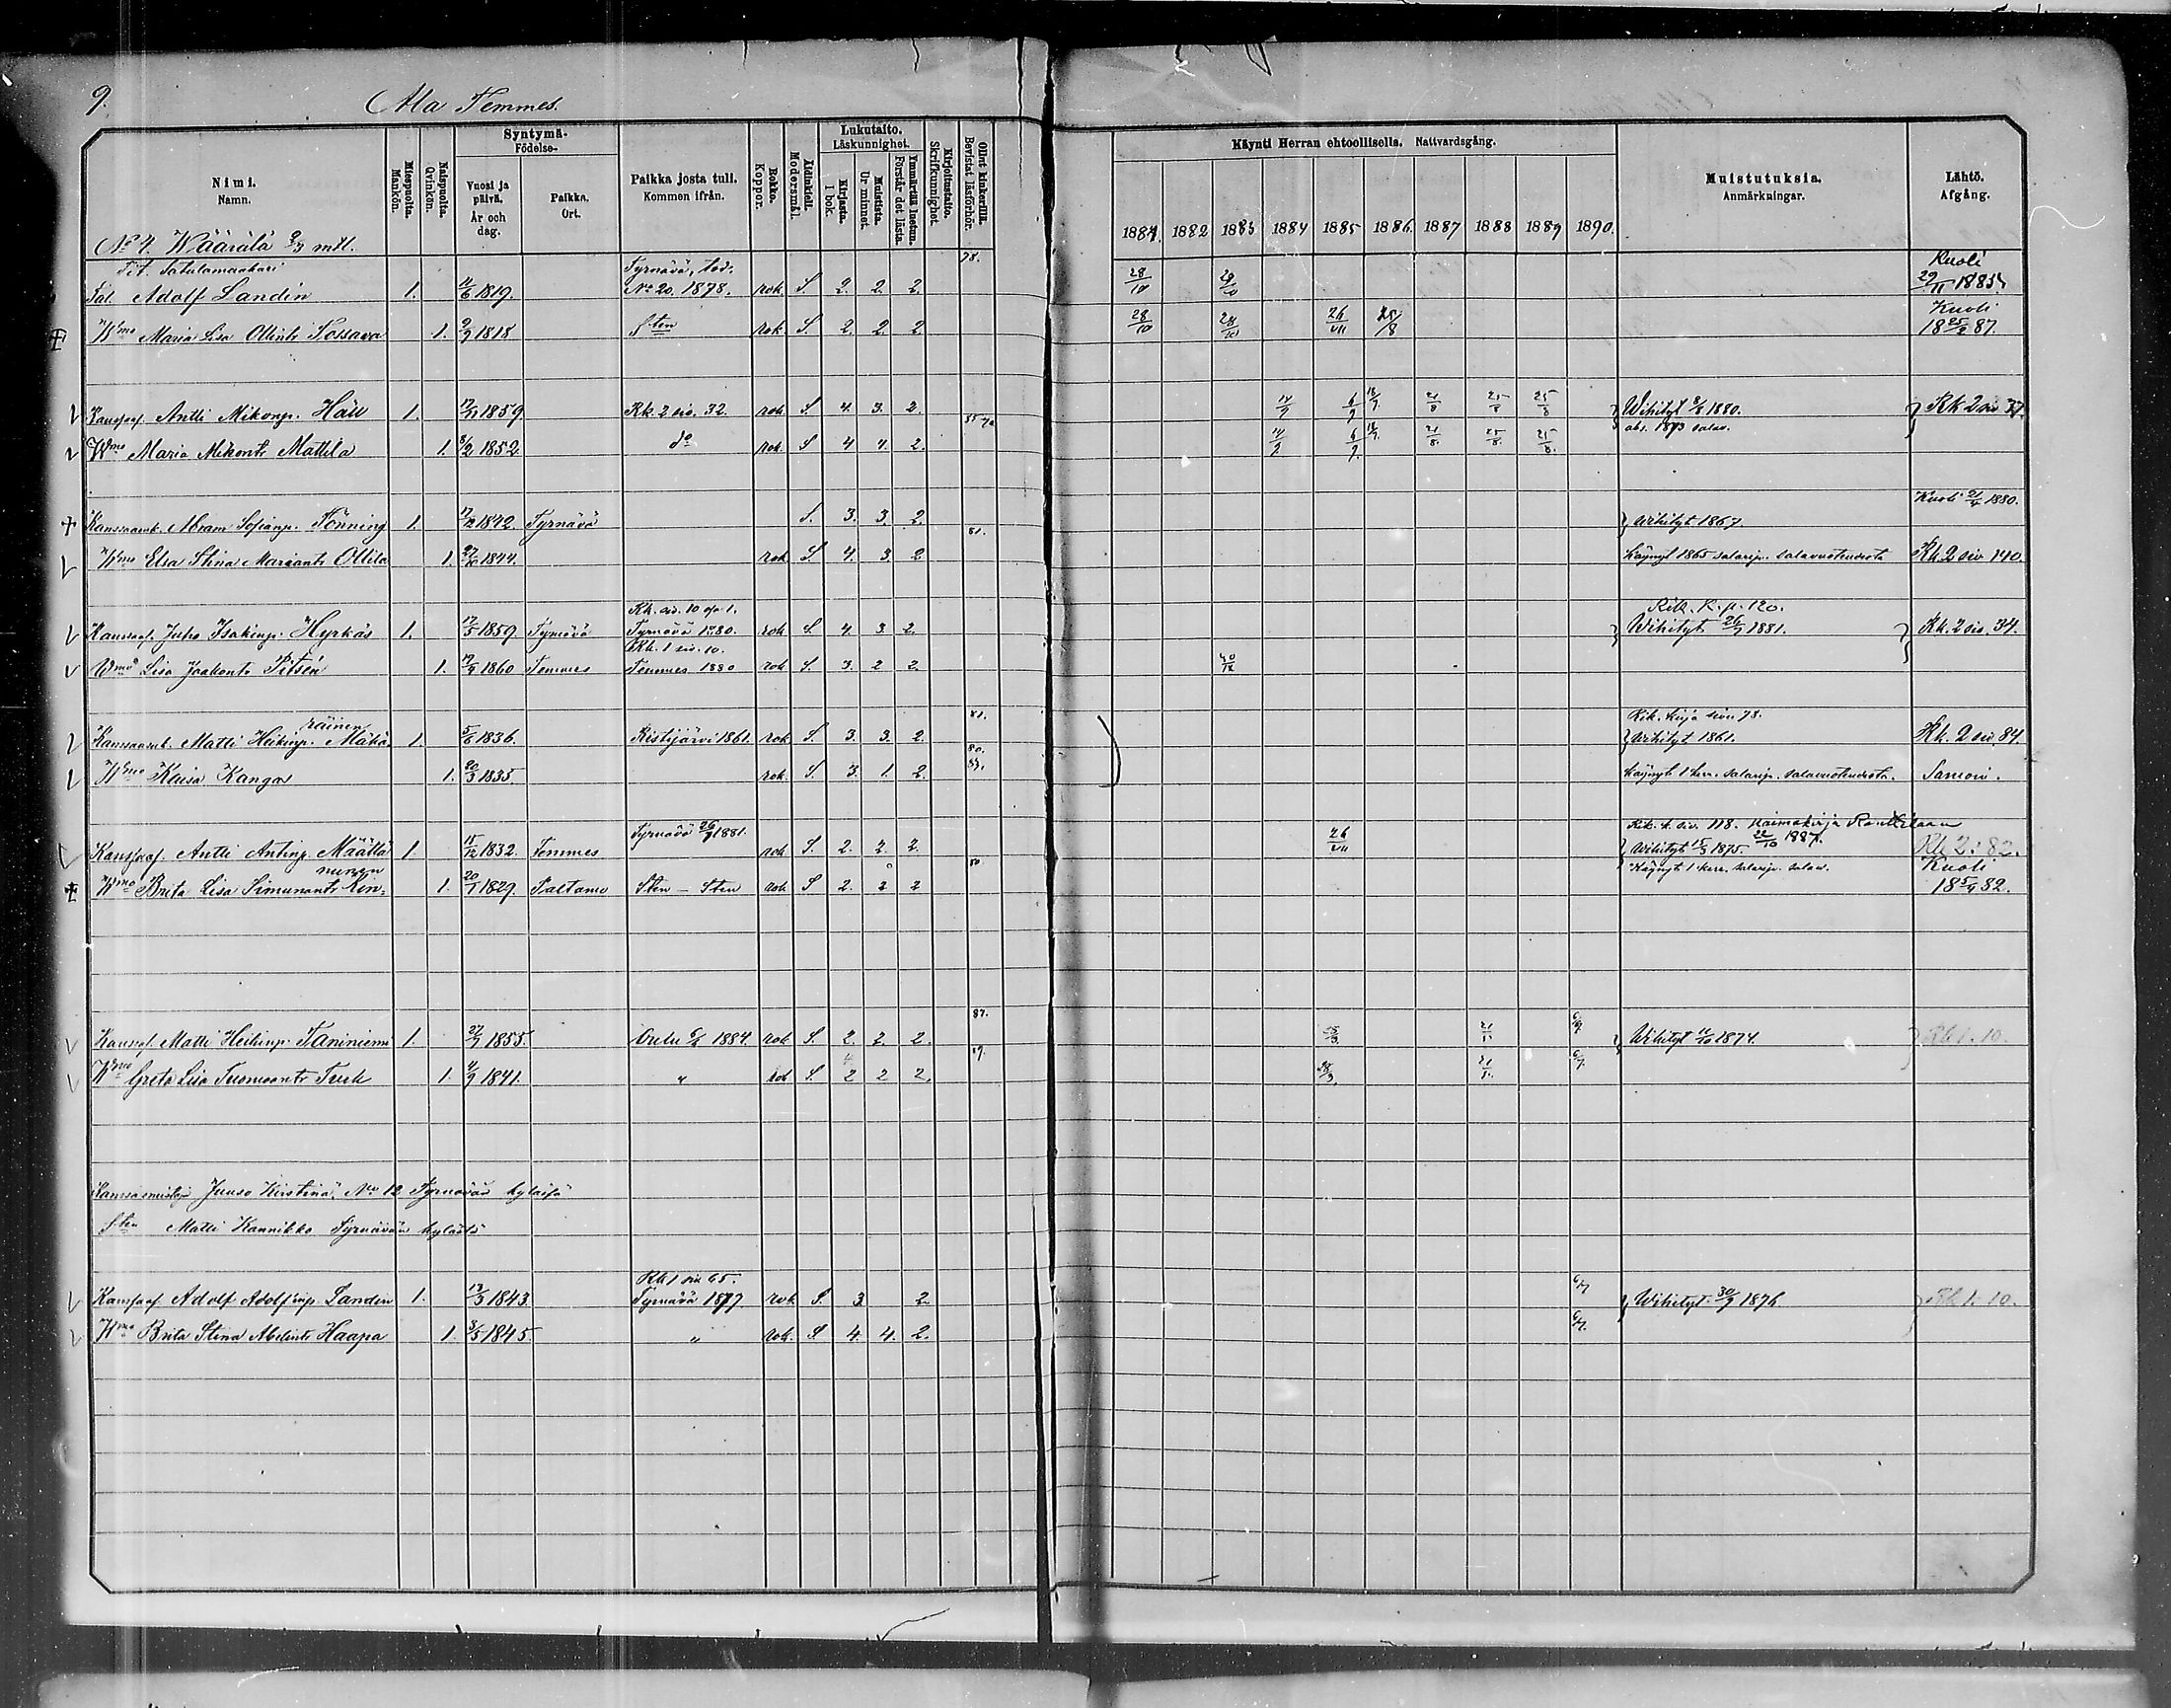 9.
Ala Temmes.
Nimi. Namn.
Miespuolta. Mankön.
Naispuolta. Qvinkön.
Syntymä- Födelse-
Vuosi ja päivä. År och dag.
Paikka. Ort.
Paikka josta tuli. Kommen ifrån.
Rokko. Koppor.
Äidinkieli. Modersmål.
Lukutaito. Läskunnighet.
Kirjasta. I bok.
Muistista. Ur minnet.
Ymmärtää luetun. Förstår det lästa.
Kirjoitustaito. Skrifkunnighet.
Ollut kinkerillä. Bevistat läsförhör.
Käynti Herran ehtoollisella. Nattvardsgång.
1881. 1882 1883 1884 1885 1886. 1887 1888 1889 1890.
Muistutuksia. Anmärkningar.
Lähtö. Afgång.
No 4. Wäärälä 2/3 mtl.
Tit. Satulamaakari Tyrnävä, tod. 78. Kuoli
Tal. Adolf Landin 1. 11/6 1819. No 20. 1878. rok S. 2. 2. 2. 28/10 29/10 29/11 1885
Wmo Maria Lisa Ollintr Possava 1. 9/9 1818 sten rok S. 2. 2. 2 28/10 28/10 26/VII 25/8 Kuoli 18 25/2 87.
Antti Mikonp. Häu 1. 12/11 1859. Rk. 2 siv. 32. rok S 4. 3. 2. 14/9 6/9 18/7. 21/8 25/8 25/8 Wihityt 1880. Rk 2 siv 37.
abs. 1873 salav.
Wmo Maria Mikontr Mattila 1. 8/2 1852. do rok S 4 4. 2. 14/9 6/9. 18/7. 21/8. 25/8. 25/8.
Kuoli 21/4 1880.
Abram Sofianp. Tönning 1. 17/12 1842. Tyrnävä S. 3. 3. 2. 81. Wihityt 1867
Wmo Elsa Stina Mariantr Ollila 1. 27/10 1844. rok S 4. 3. 2 Käynyt 1865 salavuoteudesta Rk. 2 siv 140.
Rk. siv. 10 Rik. K. p. 120.
Juho Isakinp. Hyrkäs 1. 17/5 1859. Tyrnävä Tyrnävä 1880. rok S. 4. 3. 2. Wihityt 26/9 1881. Rk. 2 siv. 34.
Rk. 1 siv. 10.
Wmo Lisa Jaakontr Pitsén 1. 17/9 1860 Temmes Temmes 1880 rok S. 3. 2 2 30/IX
räinen 81. Rik. kirja sivu 78.
Matti Heikinp. Mäkä 1. 5/6 1836. Ristijärvi 1861. rok S. 3. 3. 2. Wihityt 1861. Rk. 2 siv. 84.
80. 87.
Wmo Kaisa Kangas 1. 20/3 1835 rok. S. 3. 1. 2. Käynyt 1 kerr. salarip. salavuoteudesta. Samoin.
Tyrnävä 26/9 1881. Rik. k. siv. 118. naimakirja Rantsilaan 22/10 1887.
Antti Antinp. Määttä 1 15/12 1832. Temmes rok S. 2. 2. 2. 26/VII Wihityt 15/3 1875. Rk 2: 82.
nunen 80 Käynyt 1 kerr. salarip. salav. Kuoli
Wmo Brita Lisa Simunantr Kin= 1. 20/1 1829. Paltamo Sten - Sten rok S 2. 2 2 18 5/9 82.
87.
Matti Heikinp. Taniniemi 1. 27/7 1855. Oulu 6/6 1884. rok S. 2. 2. 2. 21/8. 6/7. Wihityt 11/10 1874. Rk 1. 10.
Wmo Greta Lisa Tuomaantr Tuck 1. 4/9 1841. " rok S. 2 2 2. 28/3. 21/8. 6/7.
Juuso Kirstinä No 12 Tyrnävän kylästä
Sten Matti Kannikko Tyrnävän kylästä
Rk 1 siv 65.
Adolf Adolfinp. Landin 1. 13/3 1843. Tyrnävä 1877. rok. S. 3 2 6/7 Wihityt 30/9 1876. Rk 1. 10.
Wmo Brita Stina Abelintr Haapa 1. 3/5 1845. " rok. S 4. 4. 2. 6/7.